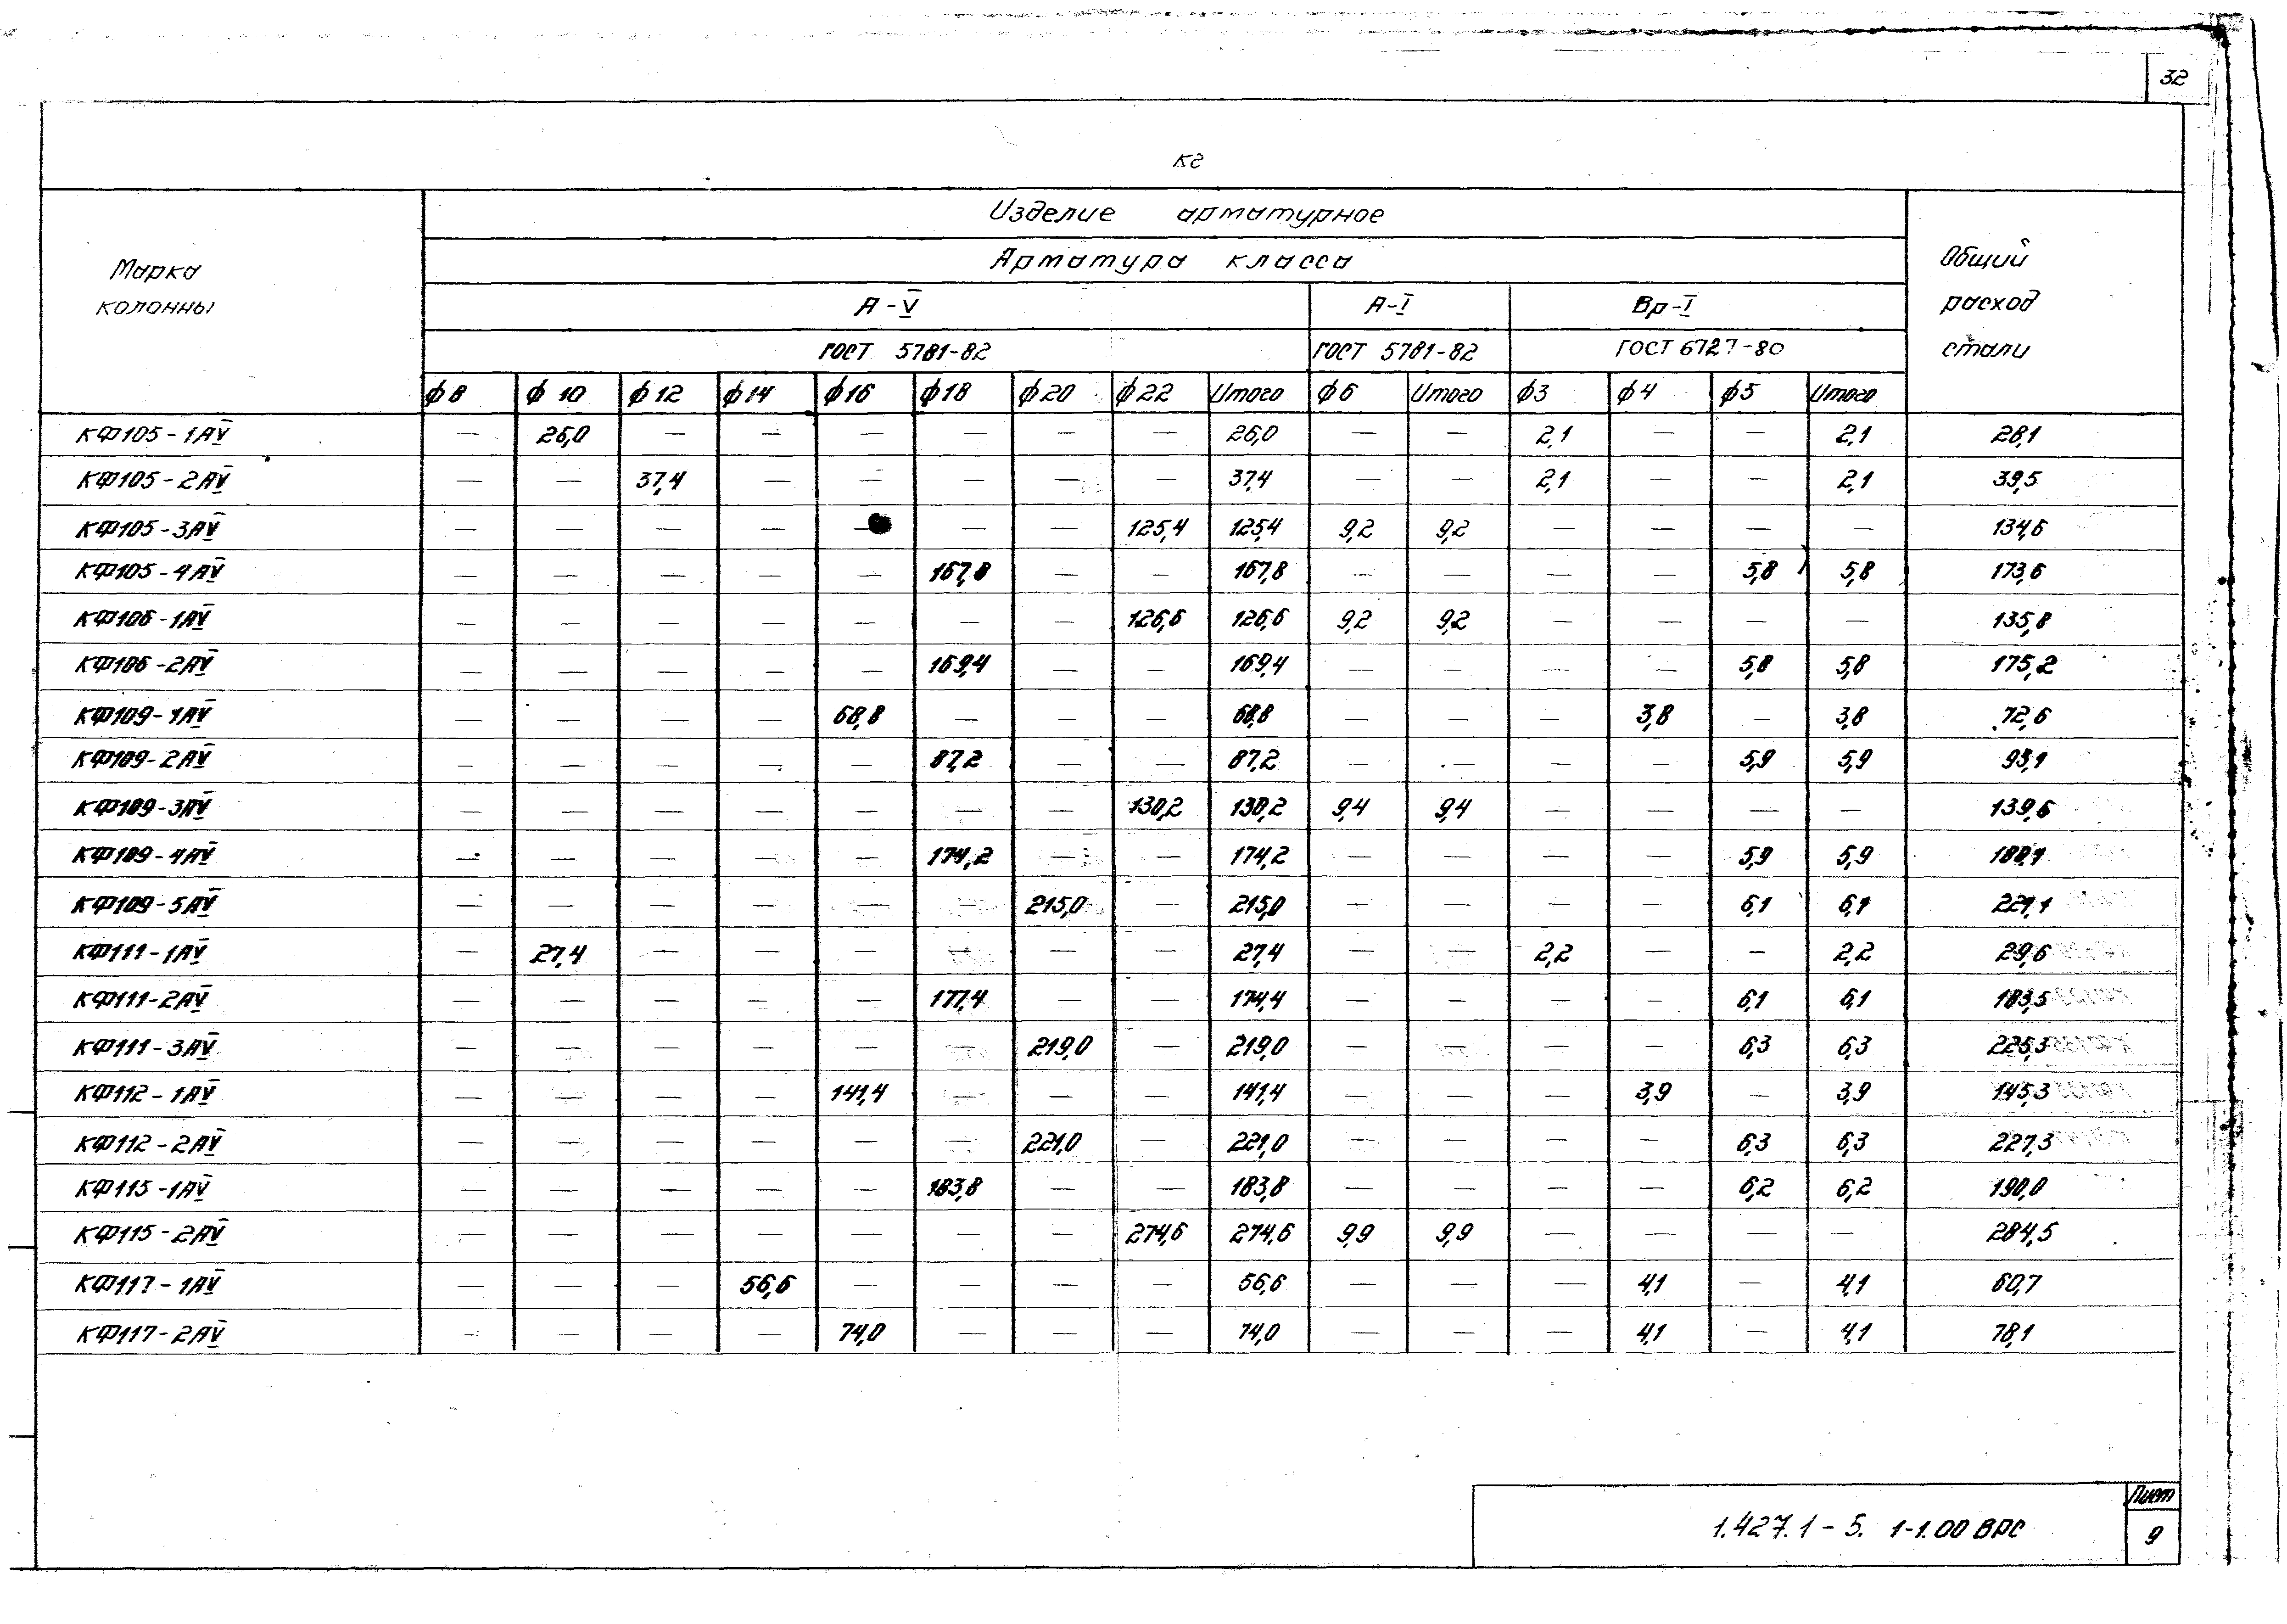 32
кг
Марка колонны
Изделие арматурное
Общий расход стали
Арматура класса
А-V А-I Вр-I
ГОСТ 5781-82 ГОСТ 5781-82 ГОСТ 6727-80
ф8 ф10 ф12 ф14 ф16 ф18 ф20 ф22 Итого ф6 Итого ф3 ф4 ф5 Итого
КФ105-1АV — 26,0 — — — — — — 26,0 — — 2,1 — — 2,1 28,1
КФ105-2АV — — 37,4 — — — — — 37,4 — — 2,1 — — 2,1 39,5
КФ105-3АV — — — — — — — 125,4 125,4 9,2 9,2 — — — — 134,6
КФ105-4АV — — — — — 167,8 — — 167,8 — — — — 5,8 5,8 173,6
КФ106-1АV — — — — — — — 126,6 126,6 9,2 9,2 — — — — 135,8
КФ106-2АV — — — — — 169,4 — — 169,4 — — — — 5,8 5,8 175,2
КФ109-1АV — — — — 68,8 — — — 68,8 — — — 3,8 — 3,8 72,6
КФ109-2АV — — — — — 87,2 — — 87,2 — — — — 5,9 5,9 93,1
КФ109-3АV — — — — — — — 130,2 130,2 9,4 9,4 — — — — 139,6
КФ109-4АV — — — — — 174,2 — — 174,2 — — — — 5,9 5,9 180,1
КФ109-5АV — — — — — — 215,0 — 215,0 — — — — 6,1 6,1 221,1
КФ111-1АV — 27,4 — — — — — — 27,4 — — 2,2 — — 2,2 29,6
КФ111-2АV — — — — — 177,4 — — 174,4 — — — — 6,1 6,1 183,5
КФ111-3АV — — — — — — 219,0 — 219,0 — — — — 6,3 6,3 225,3
КФ112-1АV — — — — 141,4 — — — 141,4 — — — 3,9 — 3,9 145,3
КФ112-2АV — — — — — — 221,0 — 221,0 — — — — 6,3 6,3 227,3
КФ115-1АV — — — — — 183,8 — — 183,8 — — — — 6,2 6,2 190,0
КФ115-2АV — — — — — — — 274,6 274,6 9,9 9,9 — — — — 284,5
КФ117-1АV — — — 56,6 — — — — 56,6 — — — 4,1 — 4,1 60,7
КФ117-2АV — — — — 74,0 — — — 74,0 — — — 4,1 — 4,1 78,1
1.427.1-5. 1-1.00 ВРС
Лист
9